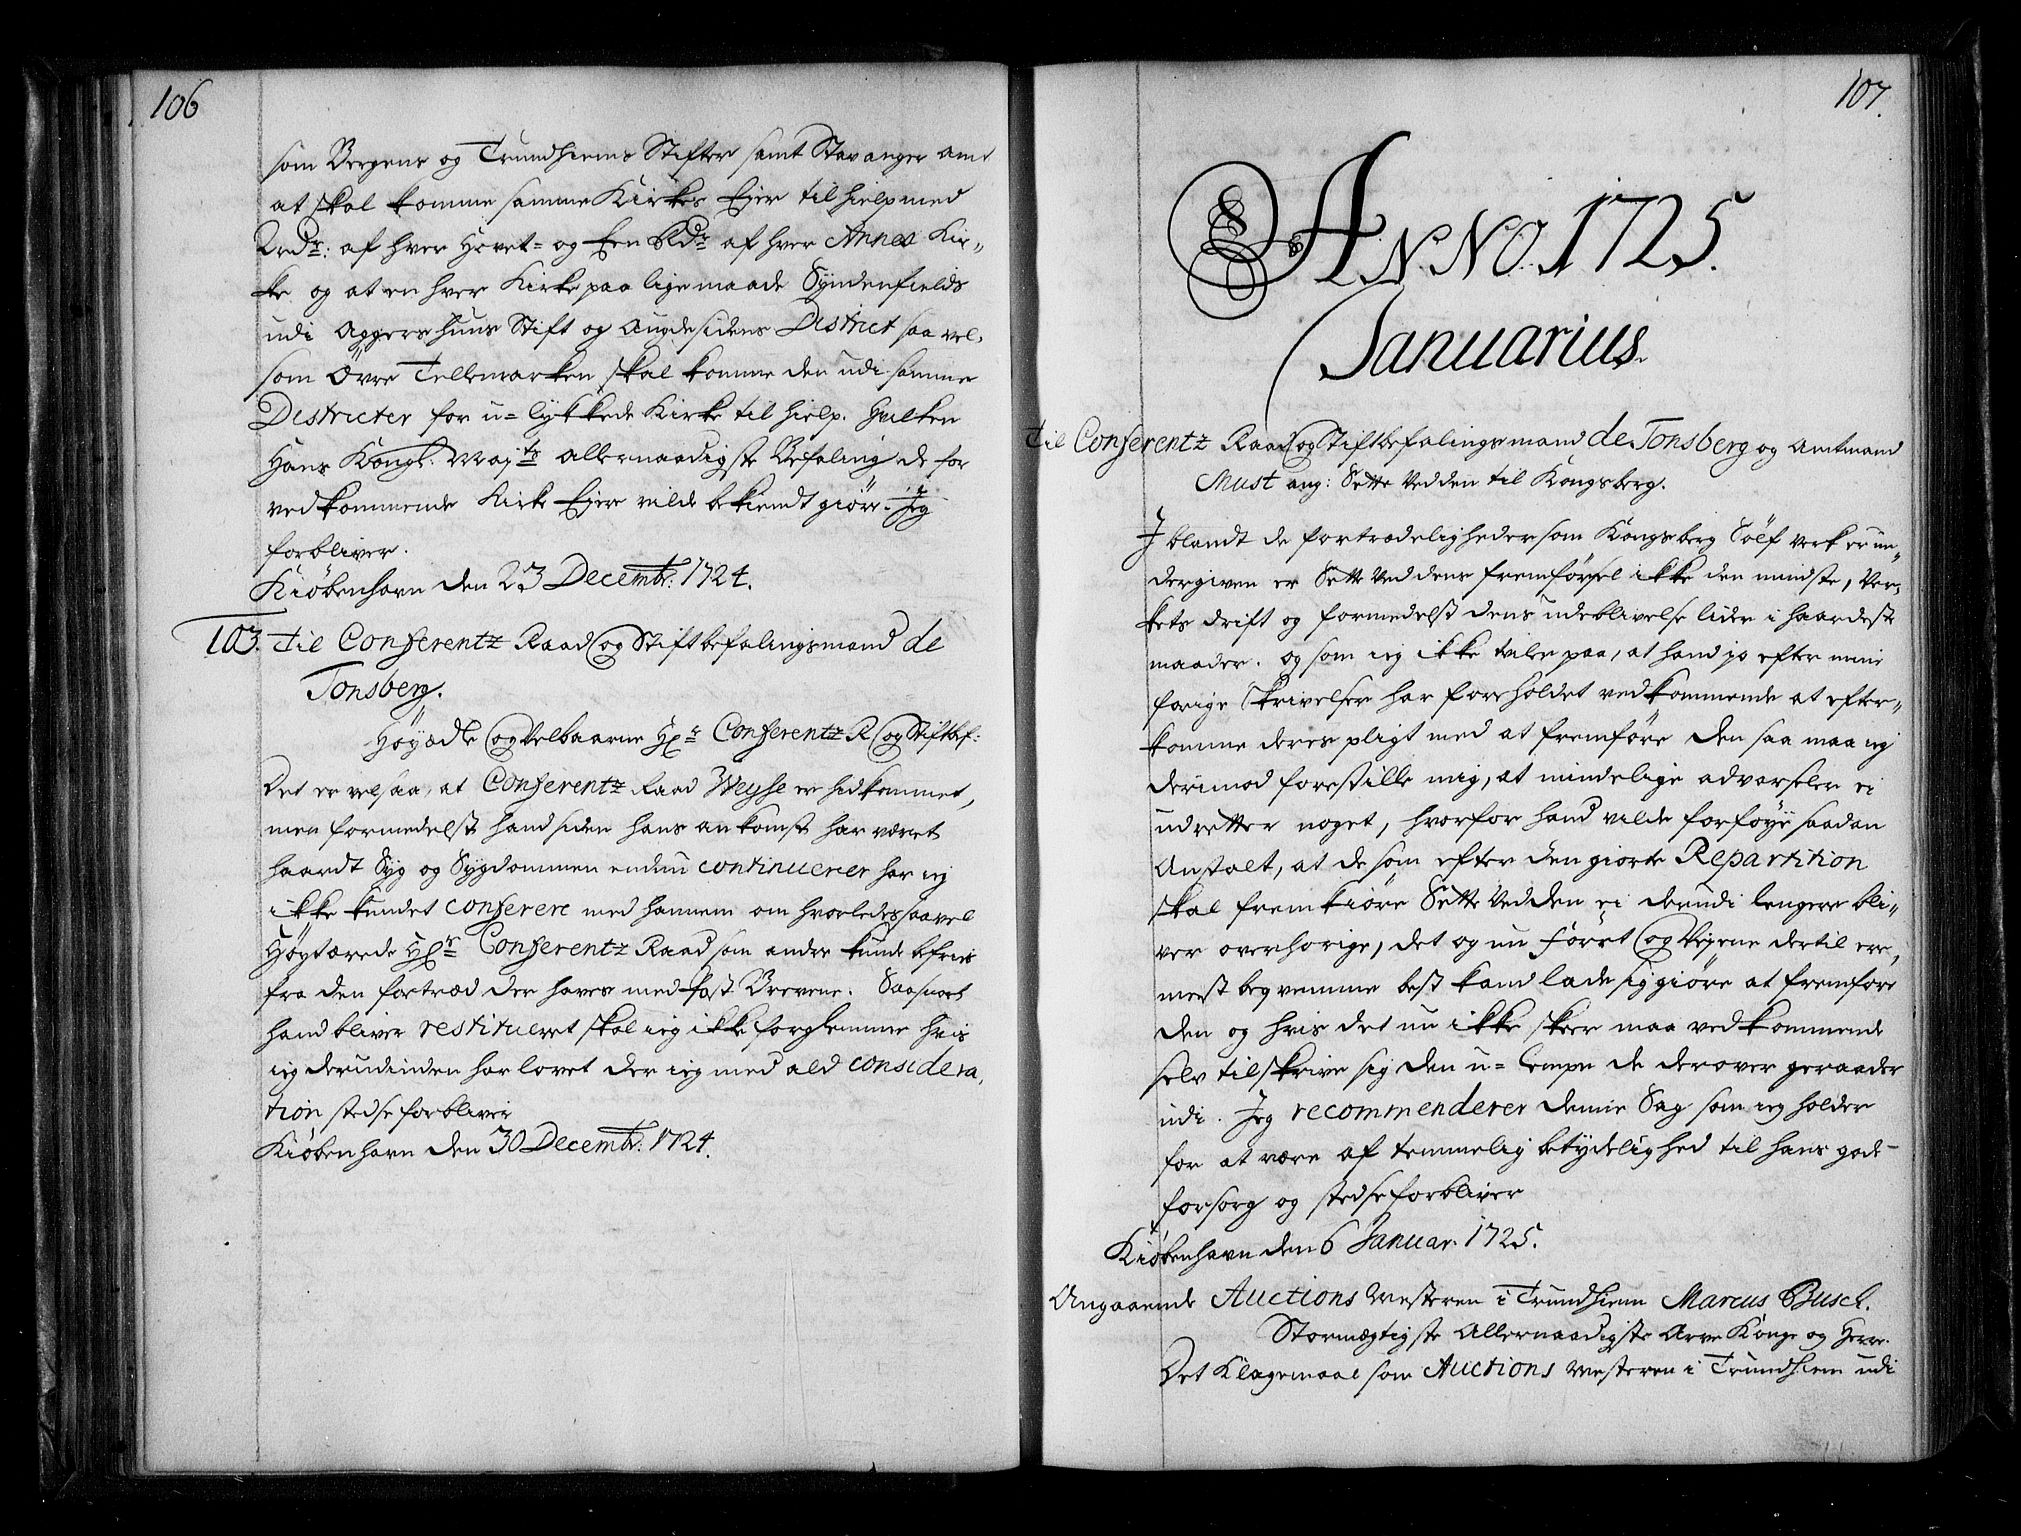 106
som Bergens og Trundhiems Stifter samt Stavanger Amt
at skal komme samme Kirkes Ejer til hielp med
2 rdr: af hver Hovet- og Een Rdr af hver Annex Kir„
ke og at en hver Kirke paa lige maade Syndenfields
udi Aggershuus Stift og Augdesidens District saa vel,
som Øvre Tellemarken skal komme den udi samme
Districter for u- lykkede Kirke til hielp. Hvilken
Hans Kongl. Majts Allernaadigste Befaling de for
vedkommende Kirke Ejere vilde bekiendt giøre. Jeg
forbliver.
Kiøbenhavn den 23 Decembr: 1724.
103. Til Conferentz Raad og Stiftbefalingsmand de
Tonsberg.
Høyædle og Velbaarne Hr Conferentz R og Stiftbef:
Det er vel saa, at Conferentz Raad Weyse er hidkommet,
men formedelst hand siden hans ankomst har været
haardt Syg og Sygdommen endnu continuerer har ieg
ikke kundet conferere med hannem om hvorledes saavel
Høytærede Hr Conferentz Raad som andre kunde befries
fra den fortræd der haves med Post Brevene. Saasnart
hand bliver restitueret skal ieg ikke forglemme hvis
ieg derudinden har lovet der ieg med ald considera,
tion stedse forbliver
Kiøbenhavn den 30 Decembr: 1724.
107.
ANNO. 1725.
Januarius.
Til Conferentz Raad og Stiftbefalingsmand de Tonsberg og Amtmand
Must ang: Sette Vedden til Kongsberg.
J blandt de fortrædeligheder som Kongsberg Sølf Verk er un„
dergiven er Sette Veddens fremførsel ikke den mindste, Ver„
kets drift og formedelst dens udeblivelse lider i haardeste
maader. og som ieg ikke tviler paa, at hand jo efter mine
forige Skrivelser har foreholdet vedkommende at efter„
komme deres pligt med at fremføre den saa maa ieg
derimod forestille mig, at mindelige advarseler ei
udretter noget, hvorfor hand vilde forføye saadan
Anstalt, at de som efter den giorte Repartition
skal fremkiøre Sette Vedden ei derudi lengere bli„
ver overhorige, det og nu Føret og Vejene dertil ere,
meest beqvemme best kand lade sig giøre at fremføre
den og hvis det nu ikke skeer maa vedkommende
selv tilskrive sig den u- lempe de derover geraader
udi. Jeg recommenderer denne Sag som ieg holder
for at være af temmelig betydelighed til hans gode
forsorg og stedse forbliver
Kiøbenhavn den 6 Januar. 1725.
Angaaende Auctions Mesteren i Trundhiem Marcus Busch.
Stormægtigste Allernaadigste Arve Konge og Herre.
Det Klagemaal som Auctions Mesteren i Trundhiem udi